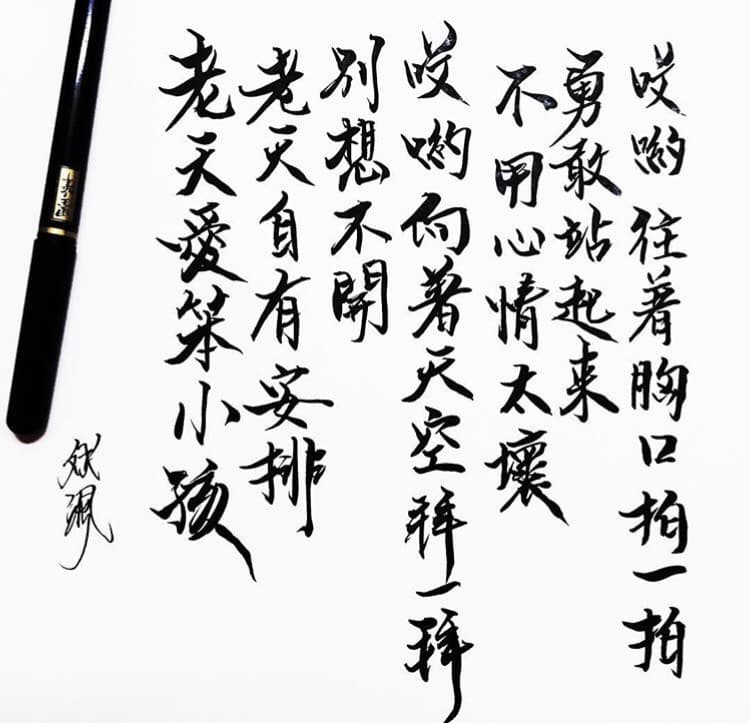 哎喲往着胸口拍一拍
勇敢站起来
不用心情太壞
哎喲向著天空拜一拜
別想不開
老天自有安排
老天愛笨小孩